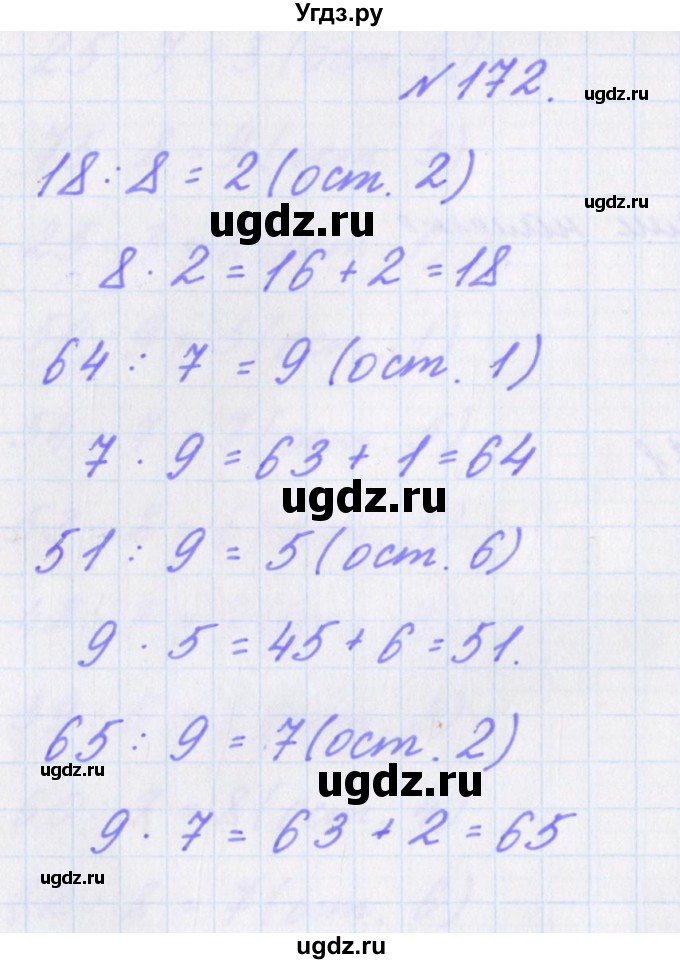 Угдз.ру
№172.
ugdz.ru
18 : 8 = 2 (ост. 2)
ugdz.ru
ugdz.ru
8 · 2 = 16 + 2 = 18
64 : 7 = 9 (ост. 1)
7 · 9 = 63 + 1 = 64
ugdz.ru
51 : 9 = 5 (ост. 6)
9 · 5 = 45 + 6 = 51.
65 : 9 = 7 (ост. 2)
ugdz.ru
ugdz.ru
9 · 7 = 63 + 2 = 65
ugdz.ru
ugdz.ru